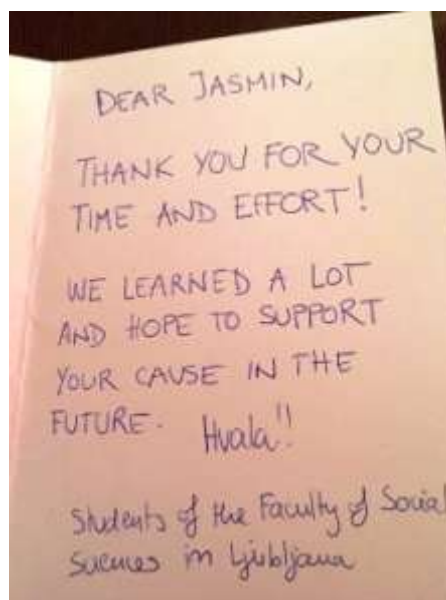 DEAR JASMIN,
THANK YOU FOR YOUR
TIME AND EFFORT!
WE LEARNED A LOT
AND HOPE TO SUPPORT
YOUR CAUSE IN THE
FUTURE. Hvala!!
Students of the Faculty of Social
Sciences in Ljubljana